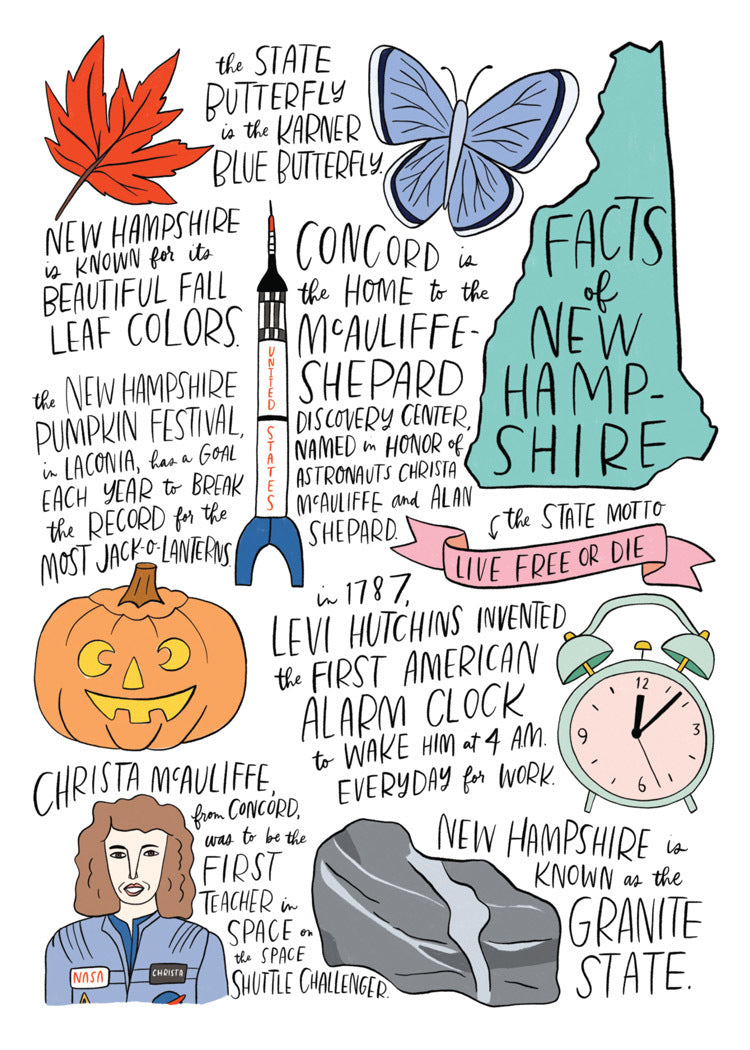 the STATE
BUTTERFLY
is the KARNER
BLUE BUTTERFLY.
FACTS
of
NEW
HAMP-
SHIRE
NEW HAMPSHIRE
is KNOWN for its
BEAUTIFUL FALL
LEAF COLORS.
CONCORD is
the HOME to the
McAULIFFE-
SHEPARD
DISCOVERY CENTER,
NAMED in HONOR of
ASTRONAUTS CHRISTA
McAULIFFE and ALAN
SHEPARD.
UNITED STATES
the NEW HAMPSHIRE
PUMPKIN FESTIVAL,
in LACONIA, has a GOAL
EACH YEAR to BREAK
the RECORD for the
MOST JACK-O-LANTERNS.
the STATE MOTTO
LIVE FREE OR DIE
in 1787,
LEVI HUTCHINS INVENTED
the FIRST AMERICAN
ALARM CLOCK
to WAKE HIM at 4 A.M.
EVERYDAY for WORK.
12
3
6
9
CHRISTA McAULIFFE,
from CONCORD,
was to be the
FIRST
TEACHER in
SPACE on
the SPACE
SHUTTLE CHALLENGER.
NASA
CHRISTA
NEW HAMPSHIRE is
KNOWN as the
GRANITE
STATE.